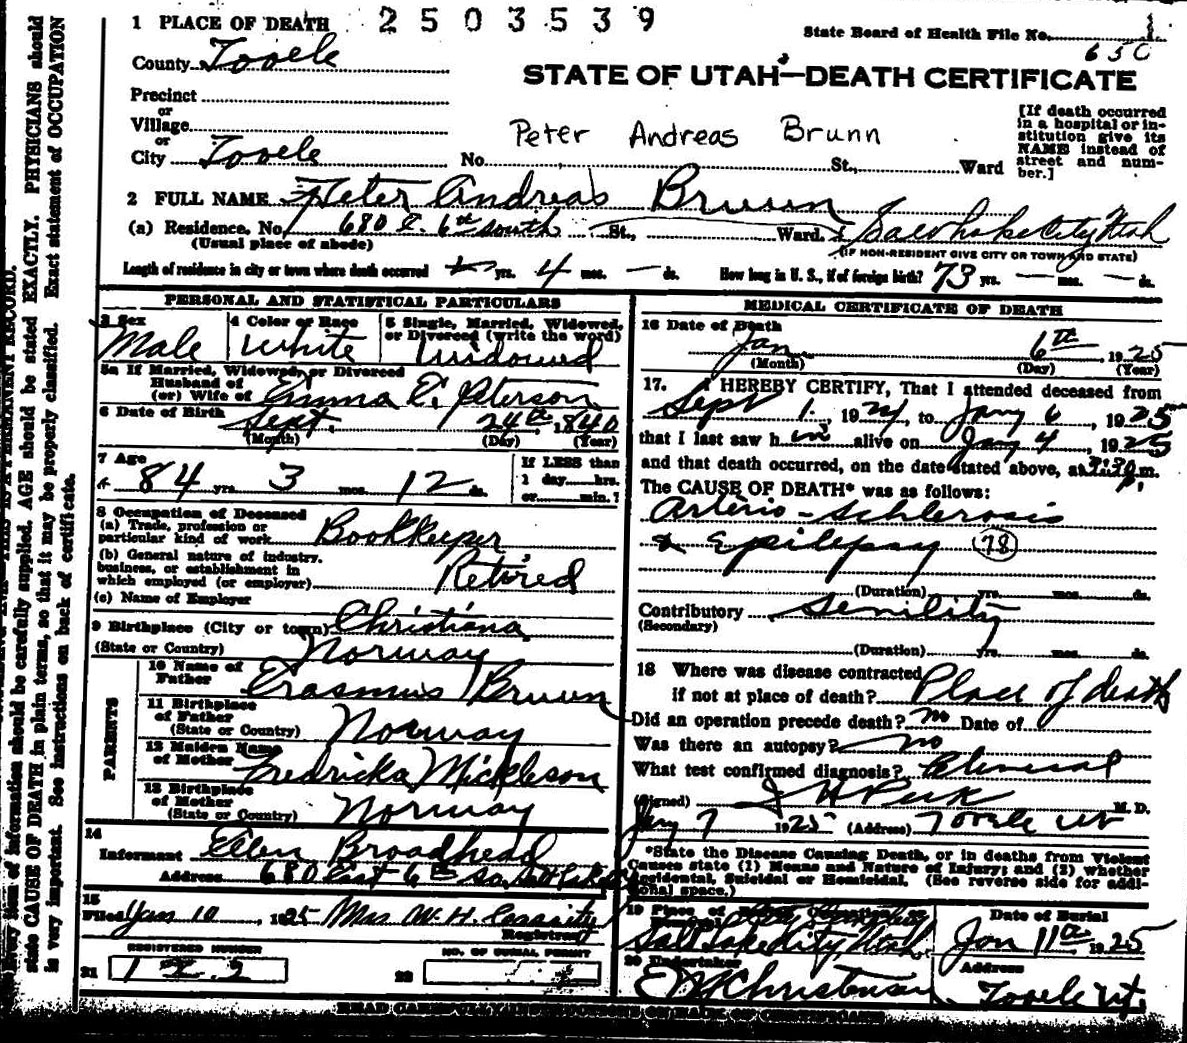 1 PLACE OF DEATH 2503539
State Board of Health File No. 1
650
County Tooele
STATE OF UTAH—DEATH CERTIFICATE
Precinct
or
Village
or
City Tooele No. St., Ward
Peter Andreas Brunn
[If death occurred
in a hospital or in-
stitution give its
NAME instead of
street and num-
ber.]
2 FULL NAME Peter Andreas Bruun
(a) Residence. No. 680 E. 6th South St., Ward. Salt Lake City Utah
(Usual place of abode) (IF NON-RESIDENT GIVE CITY OR TOWN AND STATE)
Length of residence in city or town where death occurred yrs. 4 mos. — ds. How long in U. S., if of foreign birth? 73 yrs. — mos. — ds.
PERSONAL AND STATISTICAL PARTICULARS
3 Sex Male
4 Color or Race White
5 Single, Married, Widowed,
or Divorced (write the word)
Widowed
5a If Married, Widowed, or Divorced
Husband of
(or) Wife of Emma E. Peterson
6 Date of Birth Sept. 24th, 1840
(Month) (Day) (Year)
7 Age 84 yrs. 3 mos. 12 ds.
If LESS than
1 day hrs.
or min.?
8 Occupation of Deceased
(a) Trade, profession or
particular kind of work Bookkeeper
(b) General nature of industry,
business, or establishment in
which employed (or employer) Retired
(c) Name of Employer
9 Birthplace (City or town) Christiana
(State or Country) Norway
PARENTS
10 Name of
Father Erasmus Bruun
11 Birthplace
of Father
(State or Country) Norway
12 Maiden Name
of Mother Fredricka Mickleson
13 Birthplace
of Mother
(State or Country) Norway
14
Informant Ellen Broadhead
Address 680 East 6th So. Salt Lake
15
Filed Jan 10, 1925 Mrs W. H. Cassity
Registrar
REGISTERED NUMBER
21 1 2
NO. OF BURIAL PERMIT
22
MEDICAL CERTIFICATE OF DEATH
16 Date of Death
Jan 6th, 1925
(Month) (Day) (Year)
17. I HEREBY CERTIFY, That I attended deceased from
Sept 1, 1924, to Jany 6, 1925
that I last saw him alive on Jany 4, 1925
and that death occurred, on the date stated above, at m.
The CAUSE OF DEATH* was as follows:
Arterio-Schlerosis
& Epilepsy (78)
(Duration) yrs. mos. ds.
Contributory Senility
(Secondary)
(Duration) yrs. mos. ds.
18 Where was disease contracted
if not at place of death? Place of death
Did an operation precede death? no Date of
Was there an autopsy? no
What test confirmed diagnosis? Clinical
(Signed) J H Peck M. D.
Jany 7 1925 (Address) Tooele Ut
*State the Disease Causing Death, or in deaths from Violent
Causes state (1) Means and Nature of Injury; and (2) whether
Accidental, Suicidal or Homicidal. (See reverse side for addi-
tional space.)
19 Place of
Salt Lake City, Utah
Date of Burial
Jan 11th 1925
20 Undertaker
Christensen
Address
Tooele Ut.
READ CAREFULLY INSTRUCTIONS ON BACK OF CERTIFICATE
of information should be carefully supplied. AGE should be stated EXACTLY. PHYSICIANS should
state CAUSE OF DEATH in plain terms, so that it may be properly classified. Exact statement of OCCUPATION
is very important. See instructions on back of certificate.